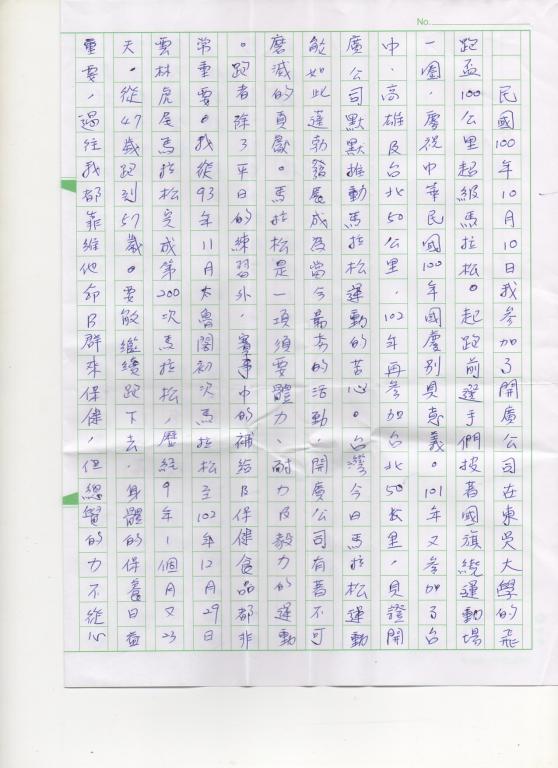 No.
民國100年10月10日我參加了開廣公司在東吳大學的飛
跑盃100公里超級馬拉松。起跑前選手們披著國旗繞運動場
一圈，慶祝中華民國100年國慶別具意義。101年又參加了台
中、高雄及台北50公里，102年再參加台北50公里，見證開
廣公司默默推動馬拉松運動的苦心。台灣今日馬拉松運動
能如此蓬勃發展成為當今最夯的活動，開廣公司有著不可
磨滅的貢獻。馬拉松是一項須要體力、耐力及毅力的運動
。跑者除了平日的練習外，賽事中的補給及保健食品都非
常重要。我從93年11月太魯閣初次馬拉松至102年12月29日
雲林虎尾馬拉松完成第200次馬拉松，歷經9年1個月又23
天。從47歲跑到57歲。要能繼續跑下去，身體的保養日益
重要，過往我都靠維他命B群來保健，但總覺的力不從心